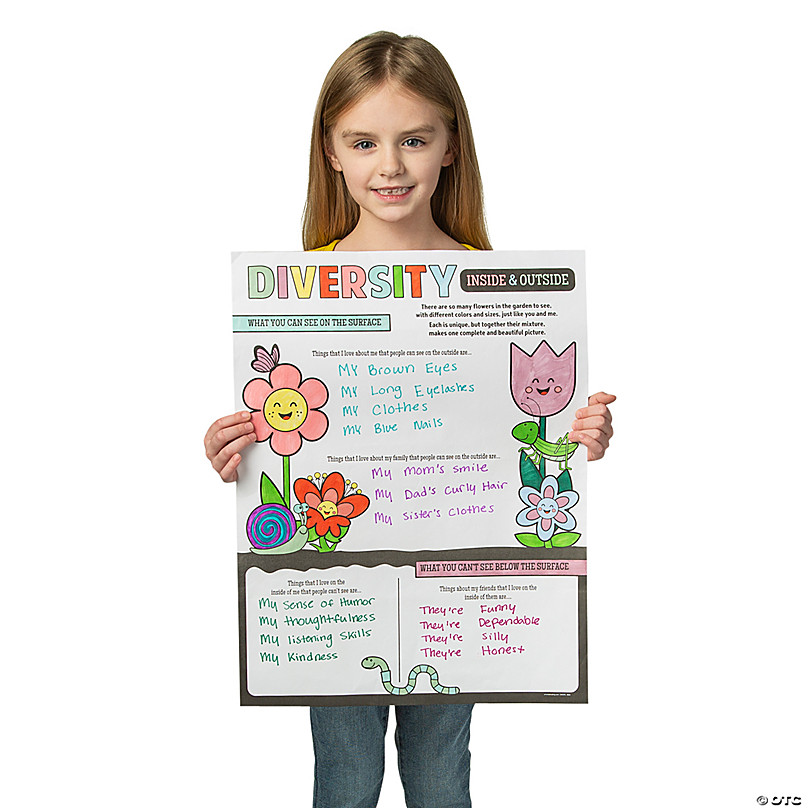 DIVERSITY INSIDE & OUTSIDE
There are so many flowers in the garden to see,
with different colors and sizes, just like you and me.
Each is unique, but together their mixture,
makes one complete and beautiful picture.
WHAT YOU CAN SEE ON THE SURFACE
Things that I love about me that people can see on the outside are...
MY Brown Eyes
MY Long Eyelashes
MY Clothes
MY Blue Nails
Things that I love about my family that people can see on the outside are...
My Mom's Smile
My Dad's Curly Hair
My Sister's Clothes
WHAT YOU CAN'T SEE BELOW THE SURFACE
Things that I love on the
inside of me that people can't see are...
My Sense of Humor
My thoughtfulness
My listening Skills
My Kindness
Things about my friends that I love on the
inside of them are....
They're Funny
They're Dependable
They're Silly
They're Honest
© OTC